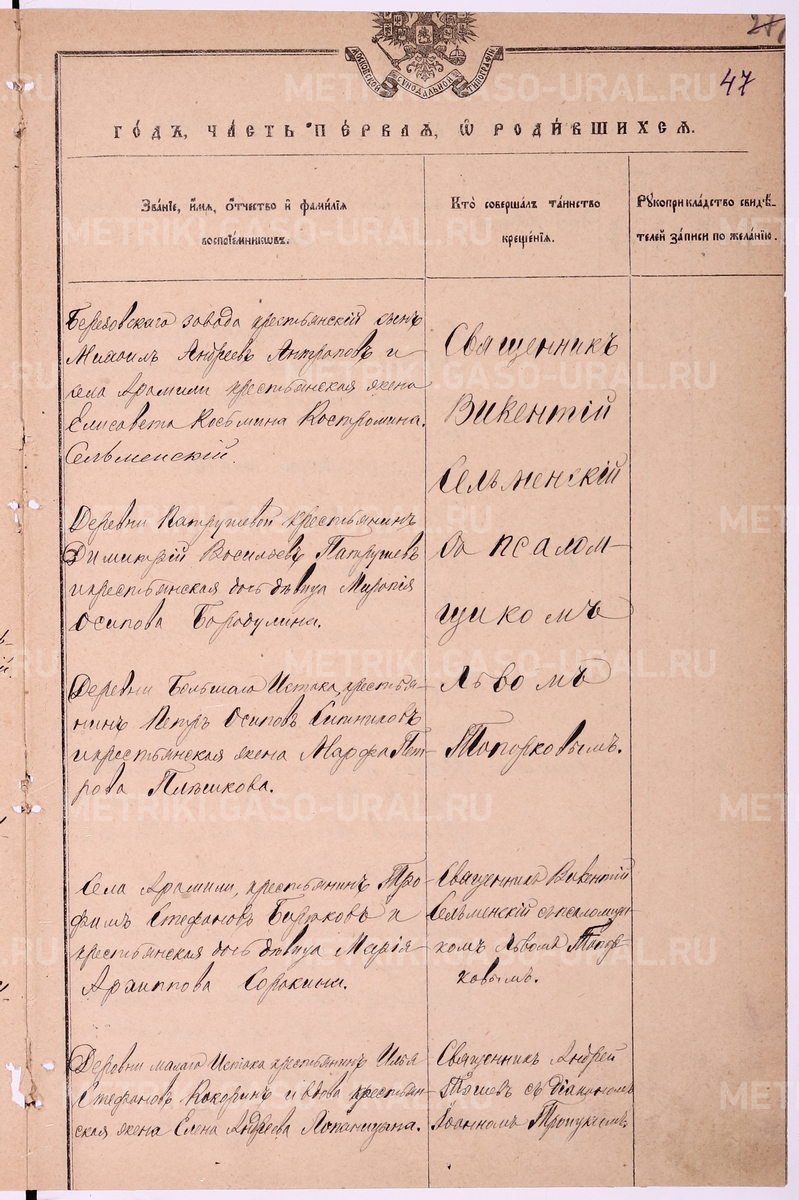 МОСКОВСКОЙ СѴНОДАЛЬНОЙ ТИПОГРАФІИ
47
ГОДЪ, ЧАСТЬ ПЕРВАЯ, Ѡ РОДИВШИХСЯ.
Званіе, имя, отчество и фамилія
воспріемниковъ.
Кто совершалъ таинство
крещенія.
Рукоприкладство свидѣ-
телей записи по желанію.
Березовскаго завода крестьянскій сынъ
Михаилъ Андреевъ Антроповъ и
села Арамили крестьянская жена
Елисавета Косьмина Костромина.
Сельменскій.
Деревни Патрушевой крестьянинъ
Димитрій Васильевъ Патрушевъ
и крестьянская дочь дѣвица Миропія
Осипова Бородулина.
Деревни Большаго Истока, крестья-
нинъ Петръ Осиповъ Ситниковъ
и крестьянская жена Марфа Пет-
рова Плѣшкова.
Села Арамили, крестьянинъ Тро-
фимъ Стефановъ и
крестьянская дочь дѣвица Марія
Архиппова Сорокина.
Деревни малаго Истока крестьянинъ Илья
Стефановъ Кокоринъ и крестьян-
ская жена Елена Андреева
Священникъ
Викентій
Сельменскій
съ псалом-
щикомъ
Львомъ
Топорковымъ.
Священникъ Викентій
Сельменскій съ псаломщи-
комъ Львомъ Топор-
ковымъ.
Священникъ Андрей
съ діакономъ
Іоанномъ
METRIKI.GASO-URAL.RU